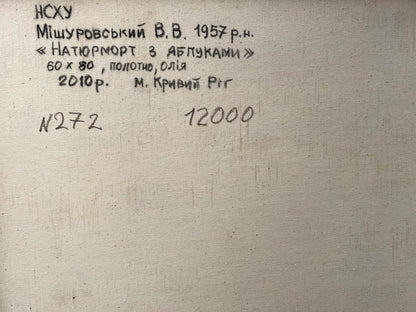 НСХУ
Мішуровський В.В. 1957 р.н.
« Натюрморт з яблуками »
60 x 80, полотно, олія
2010р. м. Кривий Ріг
N272 12000